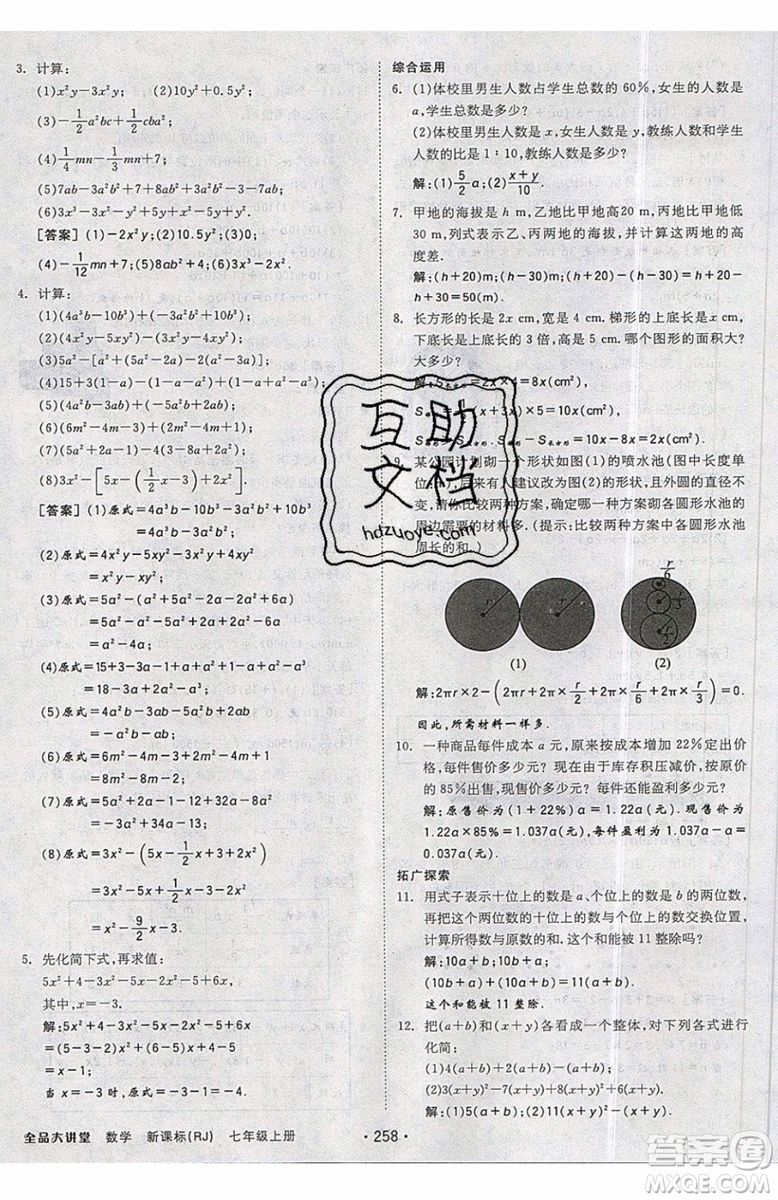 3. 计算：
(1)x²y-3x²y；　(2)10y²+0.5y²；
(3)-1/2a²bc+1/2cba²；
(4)1/4mn-1/3mn+7；
(5)7ab-3a²b²+7+8ab²+3a²b²-3-7ab；
(6)3x³-3x²-y²+5y+x²-5y+y².
[答案] (1)-2x²y；(2)10.5y²；(3)0；
(4)-1/12mn+7；(5)8ab²+4；(6)3x³-2x².
4. 计算：
(1)(4a³b-10b³)+(-3a²b²+10b³)；
(2)(4x²y-5xy²)-(3x²y-4xy²)；
(3)5a²-[a²+(5a²-2a)-2(a²-3a)]；
(4)15+3(1-a)-(1-a-a²)+(1-a+a²-a³)；
(5)(4a²b-3ab)+(-5a²b+2ab)；
(6)(6m²-4m-3)+(2m²-4m+1)；
(7)(5a²+2a-1)-4(3-8a+2a²)；
(8)3x²-[5x-(1/2x-3)+2x²].
[答案] (1)原式=4a³b-10b³-3a²b²+10b³
=4a³b-3a²b²；
(2)原式=4x²y-5xy²-3x²y+4xy²
=x²y-xy²；
(3)原式=5a²-(a²+5a²-2a-2a²+6a)
=5a²-a²-5a²+2a+2a²-6a
=a²-4a；
(4)原式=15+3-3a-1+a+a²+1-a+a²-a³
=18-3a+2a²-a³；
(5)原式=4a²b-3ab-5a²b+2ab
=-a²b-ab；
(6)原式=6m²-4m-3+2m²-4m+1
=8m²-8m-2；
(7)原式=5a²+2a-1-12+32a-8a²
=-3a²+34a-13；
(8)原式=3x²-(5x-1/2x+3+2x²)
=3x²-5x+1/2x-3-2x²
=x²-9/2x-3.
5. 先化简下式，再求值：
5x²+4-3x²-5x-2x²-5+6x，
其中，x=-3.
解：5x²+4-3x²-5x-2x²-5+6x
=(5-3-2)x²+(-5+6)x+(4-5)
=x-1.
当x=-3时，原式=-3-1=-4.
综合运用
6. (1)体校里男生人数占学生总数的60%，女生的人数是
a，学生总数是多少？
(2)体校里男生人数是x，女生人数是y，教练人数和学生
人数的比是1∶10，教练人数是多少？
解：(1)5/2a；(2)(x+y)/10.
7. 甲地的海拔是h m，乙地比甲地高20 m，丙地比甲地低
30 m，列式表示乙、丙两地的海拔，并计算这两地的高
度差.
解：(h+20)m；(h-30)m；(h+20)-(h-30)=50(m).
8. 长方形的长是2x cm，宽是4 cm，梯形的上底长是x cm，
下底长是上底长的3倍，高是5 cm，哪个图形的面积大？
大多少？
=2x×4=8x(cm²)，
=10x-8x=2x(cm²).
9. 某公园计划砌一个形状如图(1)的喷水池(图中长度单
后来有人建议改为图(2)的形状，且外圆的直径不
变，请你比较两种方案，确定哪一种方案砌各圆形水池的
周边需要的材料多.(提示：比较两种方案中各圆形水池
周长的和.)
r r r/6 r/3 r/2
(1) (2)
解：2πr×2-(2πr+2π×r/2+2π×r/6+2π×r/3)=0.
因此，所需材料一样多.
10. 一种商品每件成本a元，原来按成本增加22%定出价
格，每件售价多少元？现在由于库存积压减价，按原价
的85%出售，现售价多少元？每件还能盈利多少元？
解：原售价为(1+22%)a=1.22a(元)，现售价为
1.22a×85%=1.037a(元)，每件盈利为1.037a-a=
0.037a(元).
拓广探索
11. 用式子表示十位上的数是a、个位上的数是b的两位数，
再把这个两位数的十位上的数与个位上的数交换位置，
计算所得数与原数的和.这个和能被11整除吗？
解：10a+b；10b+a；
(10a+b)+(10b+a)=11(a+b).
这个和能被11整除.
12. 把(a+b)和(x+y)各看成一个整体，对下列各式进行
化简：
(1)4(a+b)+2(a+b)-(a+b)；
(2)3(x+y)²-7(x+y)+8(x+y)²+6(x+y).
全品大讲堂　数学　新课标(RJ)　七年级上册　·258·
互助
文档
hdzuoye.com
作业精灵